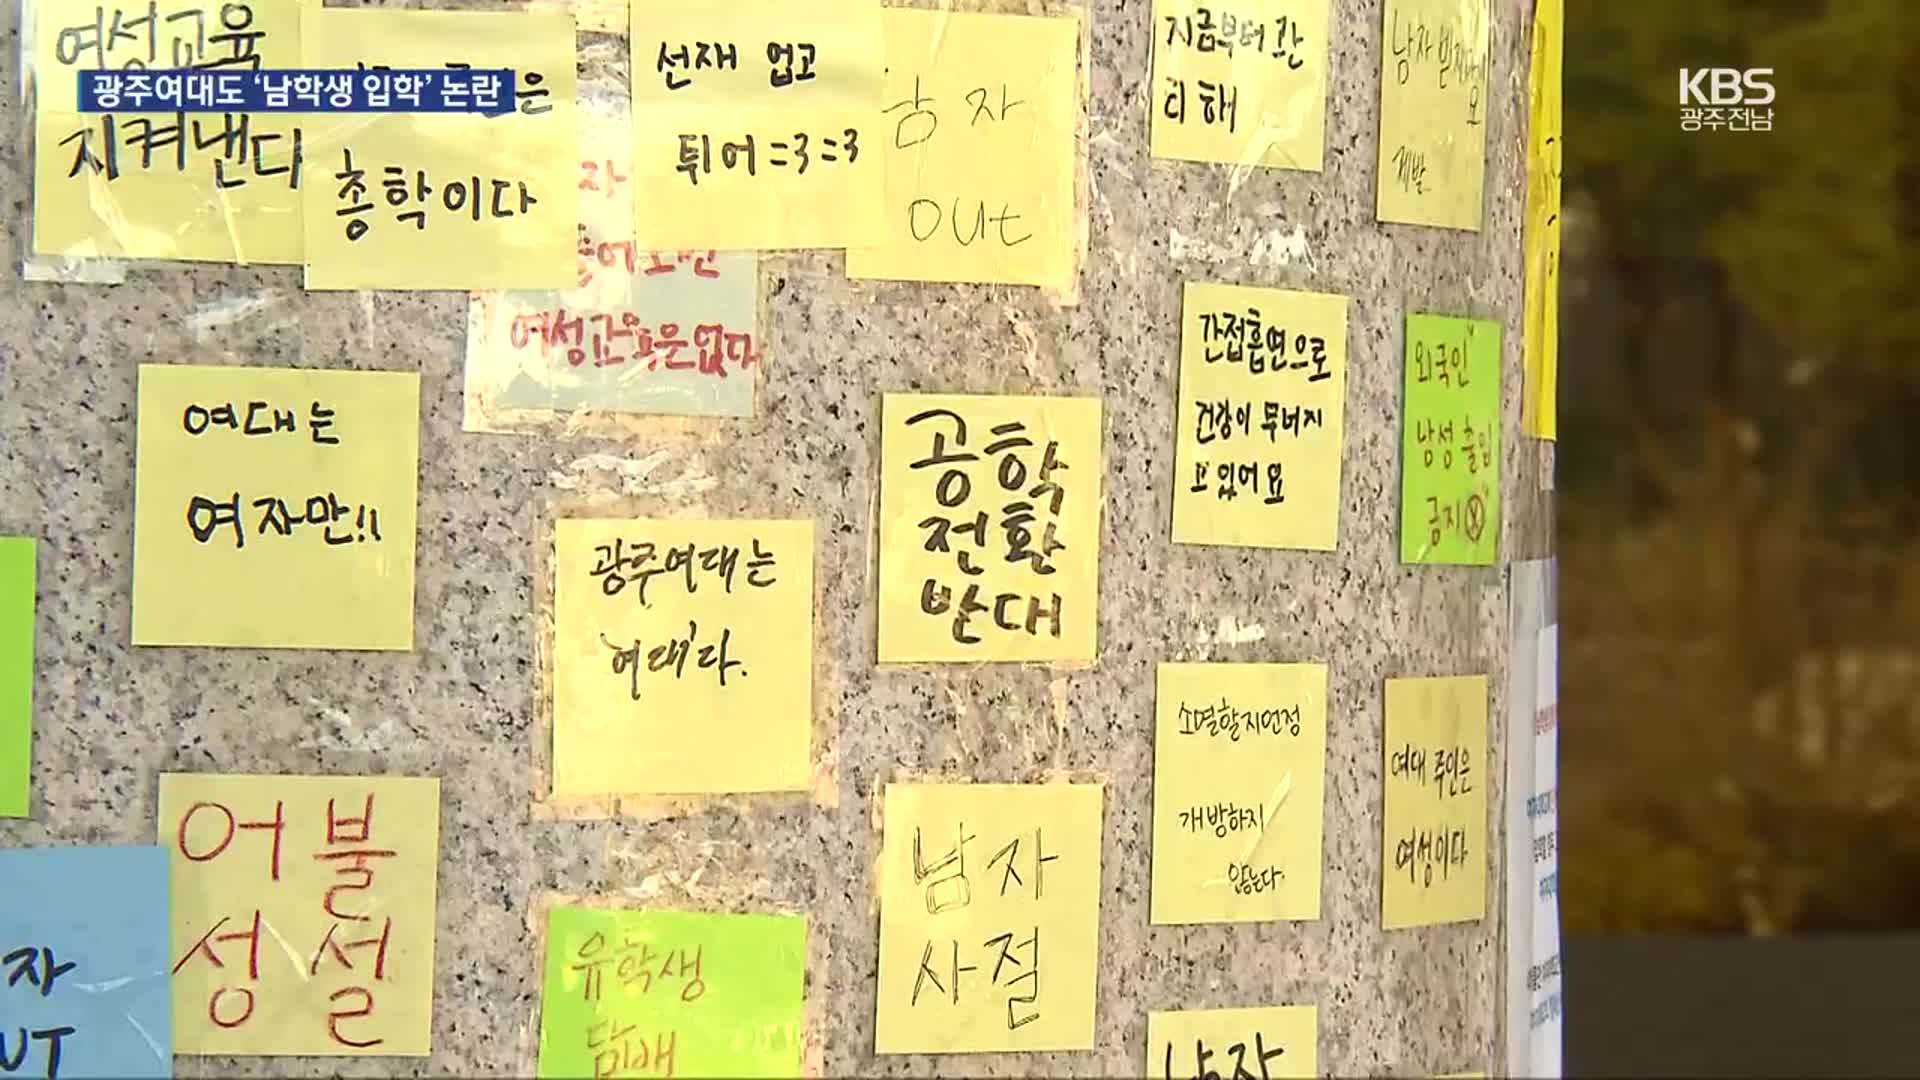 광주여대도 ‘남학생 입학’ 논란
KBS
광주전남
여성교육
지켜낸다
은
총학이다
선재 업고
튀어=3=3
남자
out
지금부터
해
남자
제발
자
여성교육은없다
간접흡연으로
건강이 무너지
고 있어요
외국인
남성 출입
금지
여대는
여자만!!
광주여대는
'여대'다.
공학
전환
반대
소멸할지언정
개방하지
않는다.
여대 주인은
여성이다
어불
성설
유학생
담배
남자
사절
자
UT
남자